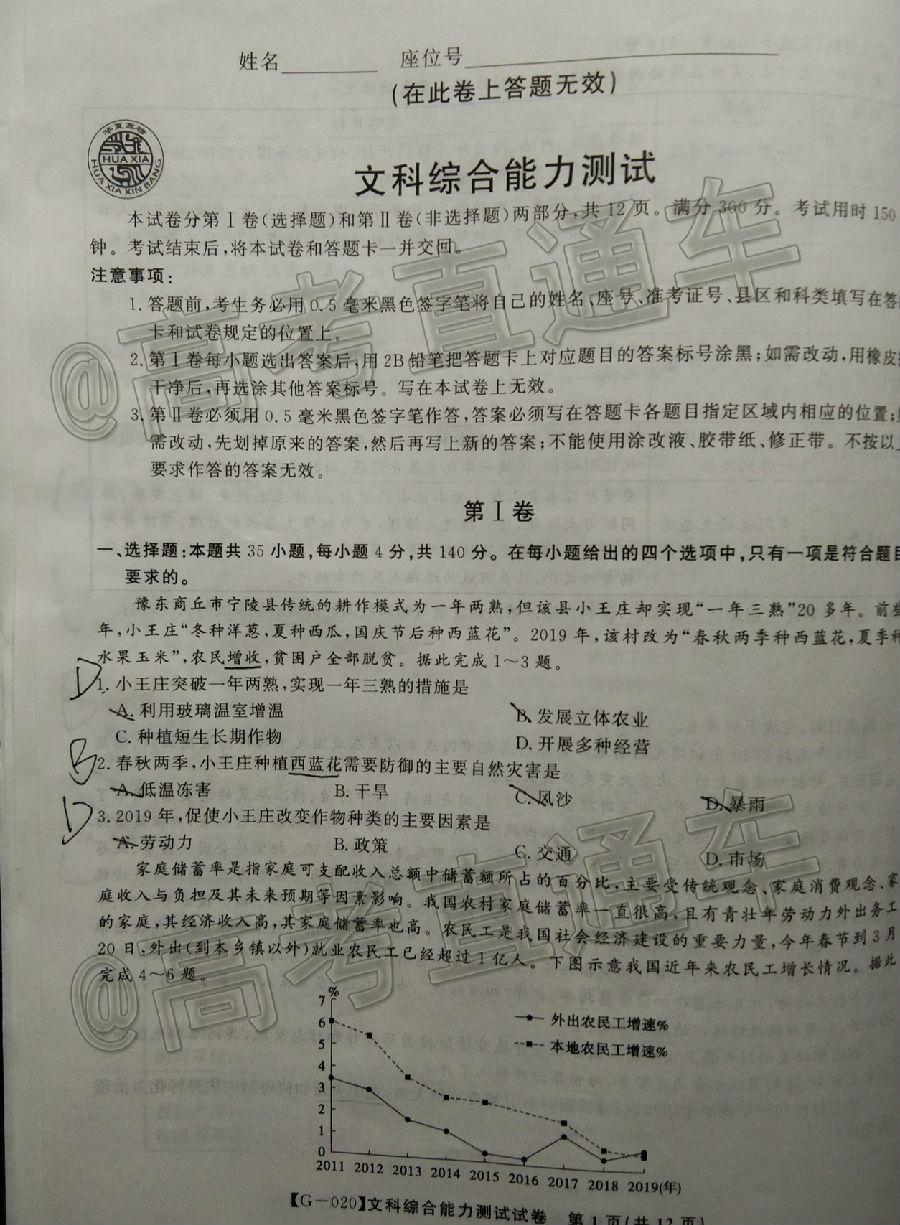 姓名 座位号
(在此卷上答题无效)
华夏鑫榜
HUA XIA
HUA XIA XIN BANG
文科综合能力测试
本试卷分第Ⅰ卷(选择题)和第Ⅱ卷(非选择题)两部分,共12页。满分300分。考试用时150
钟。考试结束后,将本试卷和答题卡一并交回。
注意事项:
1.答题前,考生务必用0.5毫米黑色签字笔将自己的姓名、座号、准考证号、县区和科类填写在答
卡和试卷规定的位置上。
2.第Ⅰ卷每小题选出答案后,用2B铅笔把答题卡上对应题目的答案标号涂黑;如需改动,用橡皮
干净后,再选涂其他答案标号。写在本试卷上无效。
3.第Ⅱ卷必须用0.5毫米黑色签字笔作答,答案必须写在答题卡各题目指定区域内相应的位置;
需改动,先划掉原来的答案,然后再写上新的答案;不能使用涂改液、胶带纸、修正带。不按以
要求作答的答案无效。
第Ⅰ卷
一、选择题:本题共35小题,每小题4分,共140分。在每小题给出的四个选项中,只有一项是符合题目
要求的。
豫东商丘市宁陵县传统的耕作模式为一年两熟,但该县小王庄却实现“一年三熟”20多年。前
年,小王庄“冬种洋葱,夏种西瓜,国庆节后种西蓝花”。2019年,该村改为“春秋两季种西蓝花,夏季种
水果玉米”,农民增收,贫困户全部脱贫。据此完成1~3题。
D 1.小王庄突破一年两熟,实现一年三熟的措施是
A.利用玻璃温室增温 B.发展立体农业
C.种植短生长期作物 D.开展多种经营
B 2.春秋两季,小王庄种植西蓝花需要防御的主要自然灾害是
A.低温冻害 B.干旱 C.风沙 D.暴雨
D 3.2019年,促使小王庄改变作物种类的主要因素是
A.劳动力 B.政策 C.交通 D.市场
家庭储蓄率是指家庭可支配收入总额中储蓄额所占的百分比,主要受传统观念、家庭消费观念、家
庭收入与负担及其未来预期等因素影响。我国农村家庭储蓄率一直很高,且有青壮年劳动力外出务工
的家庭,其经济收入高,其家庭储蓄率也高。农民工是我国社会经济建设的重要力量,今年春节到3月
20日、外出(到本乡镇以外)就业农民工已经超过1亿人。下图示意我国近年来农民工增长情况。据此
完成4~6题。
%
7
6
5
4
3
2
1
0
外出农民工增速%
本地农民工增速%
2011 2012 2013 2014 2015 2016 2017 2018 2019(年)
【G-020】文科综合能力测试试卷 第1页(共12页)
@高考直通车
@高考直通车